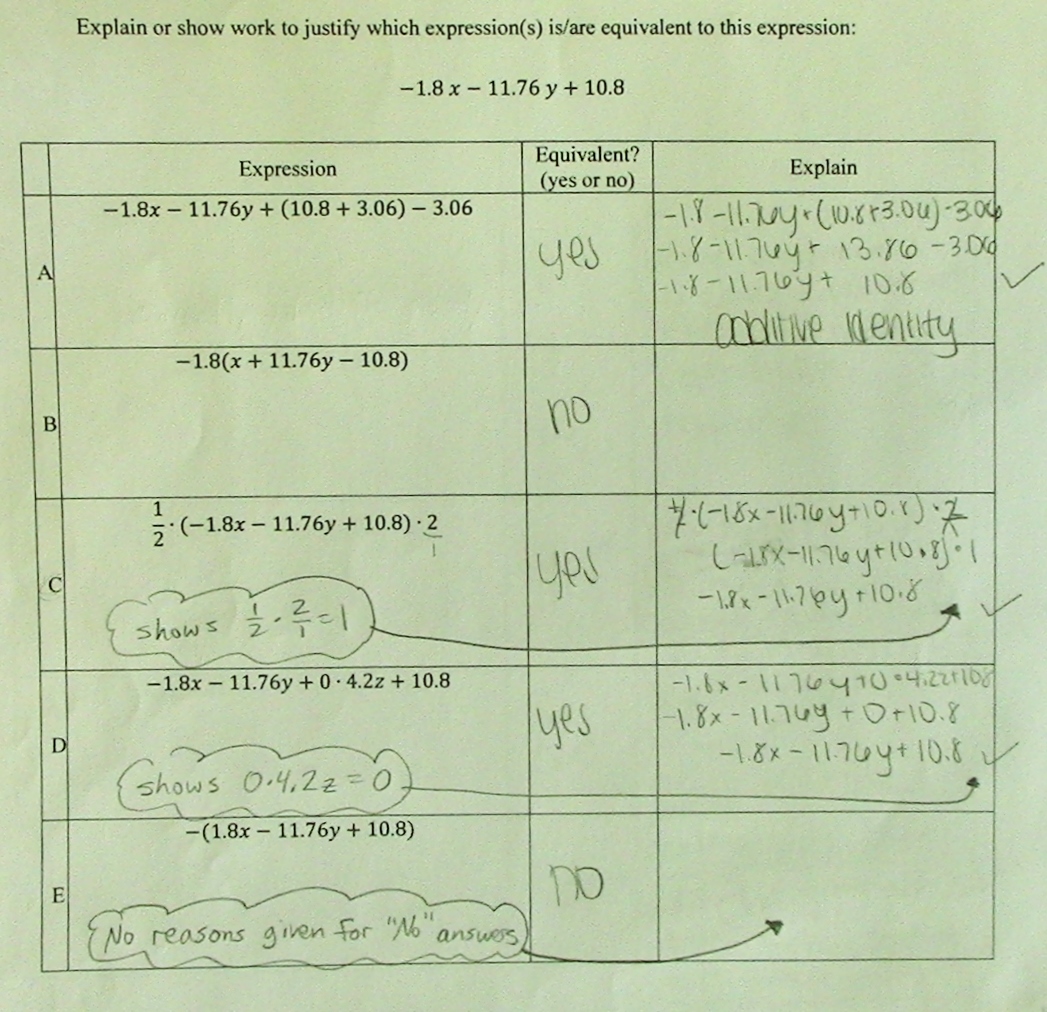 Explain or show work to justify which expression(s) is/are equivalent to this expression:
−1.8 x − 11.76 y + 10.8
Expression
Equivalent?
(yes or no)
Explain
A
−1.8x − 11.76y + (10.8 + 3.06) − 3.06
yes
-1.8-11.76y+(10.8+3.06)-3.06
-1.8-11.76y+ 13.86 -3.06
-1.8-11.76y+ 10.8
additive identity
B
−1.8(x + 11.76y − 10.8)
no
C
1/2 · (−1.8x − 11.76y + 10.8) · 2/1
shows 1/2 · 2/1 = 1
yes
1/2·(-1.8x-11.76y+10.8)·2/1
(-1.8x-11.76y+10.8)·1
-1.8x-11.76y+10.8
D
−1.8x − 11.76y + 0 · 4.2z + 10.8
shows 0·4.2z = 0
yes
-1.8x-11.76y+0·4.2z+10.8
-1.8x-11.76y+0+10.8
-1.8x-11.76y+10.8
E
−(1.8x − 11.76y + 10.8)
No reasons given for "No" answers
no